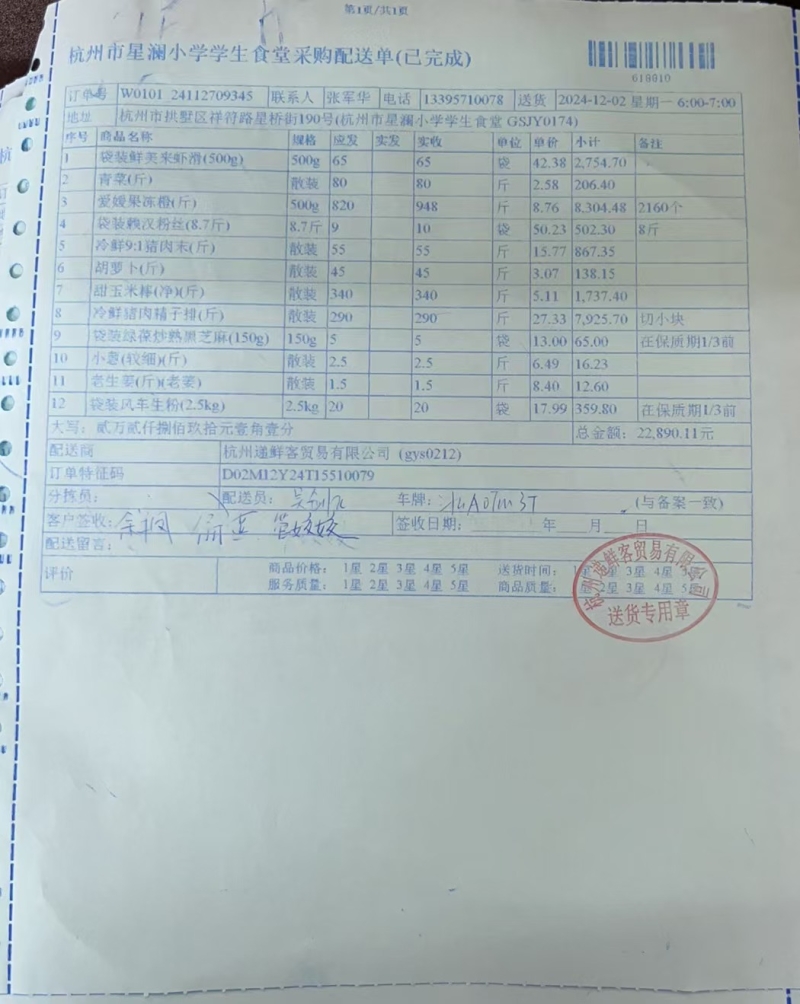 第1页/共1页
杭州市星澜小学学生食堂采购配送单(已完成)
618010
订单号 W0101_24112709345 联系人 张军华 电话 13395710078 送货 2024-12-02 星期一 6:00-7:00
地址 杭州市拱墅区祥符路星桥街190号(杭州市星澜小学学生食堂 GSJY0174)
序号 商品名称 规格 应发 实发 实收 单位 单价 小计 备注
1 袋装鲜美来虾滑(500g) 500g 65 65 袋 42.38 2,754.70
2 青菜(斤) 散装 80 80 斤 2.58 206.40
3 爱媛果冻橙(斤) 500g 820 948 斤 8.76 8,304.48 2160个
4 袋装魏汉粉丝(8.7斤) 8.7斤 9 10 袋 50.23 502.30 8斤
5 冷鲜9:1猪肉末(斤) 散装 55 55 斤 15.77 867.35
6 胡萝卜(斤) 散装 45 45 斤 3.07 138.15
7 甜玉米棒(净)(斤) 散装 340 340 斤 5.11 1,737.40
8 冷鲜猪肉精子排(斤) 散装 290 290 斤 27.33 7,925.70 切小块
9 袋装绿葆炒熟黑芝麻(150g) 150g 5 5 袋 13.00 65.00 在保质期1/3前
10 小葱(较细)(斤) 散装 2.5 2.5 斤 6.49 16.23
11 老生姜(斤)(老姜) 散装 1.5 1.5 斤 8.40 12.60
12 袋装风车生粉(2.5kg) 2.5kg 20 20 袋 17.99 359.80 在保质期1/3前
大写: 贰万贰仟捌佰玖拾元壹角壹分 总金额: 22,890.11元
配送商 杭州递鲜客贸易有限公司 (gys0212)
订单特征码 D02M12Y24T15510079
分拣员: 配送员: 车牌: (与备案一致)
客户签收: 管姣姣 签收日期: 年 月 日
配送留言:
评价 商品价格: 1星 2星 3星 4星 5星 送货时间: 1星 2星 3星 4星
服务质量: 1星 2星 3星 4星 5星 商品质量: 2星 3星 4星 5星
杭州递鲜客贸易有限公司
送货专用章